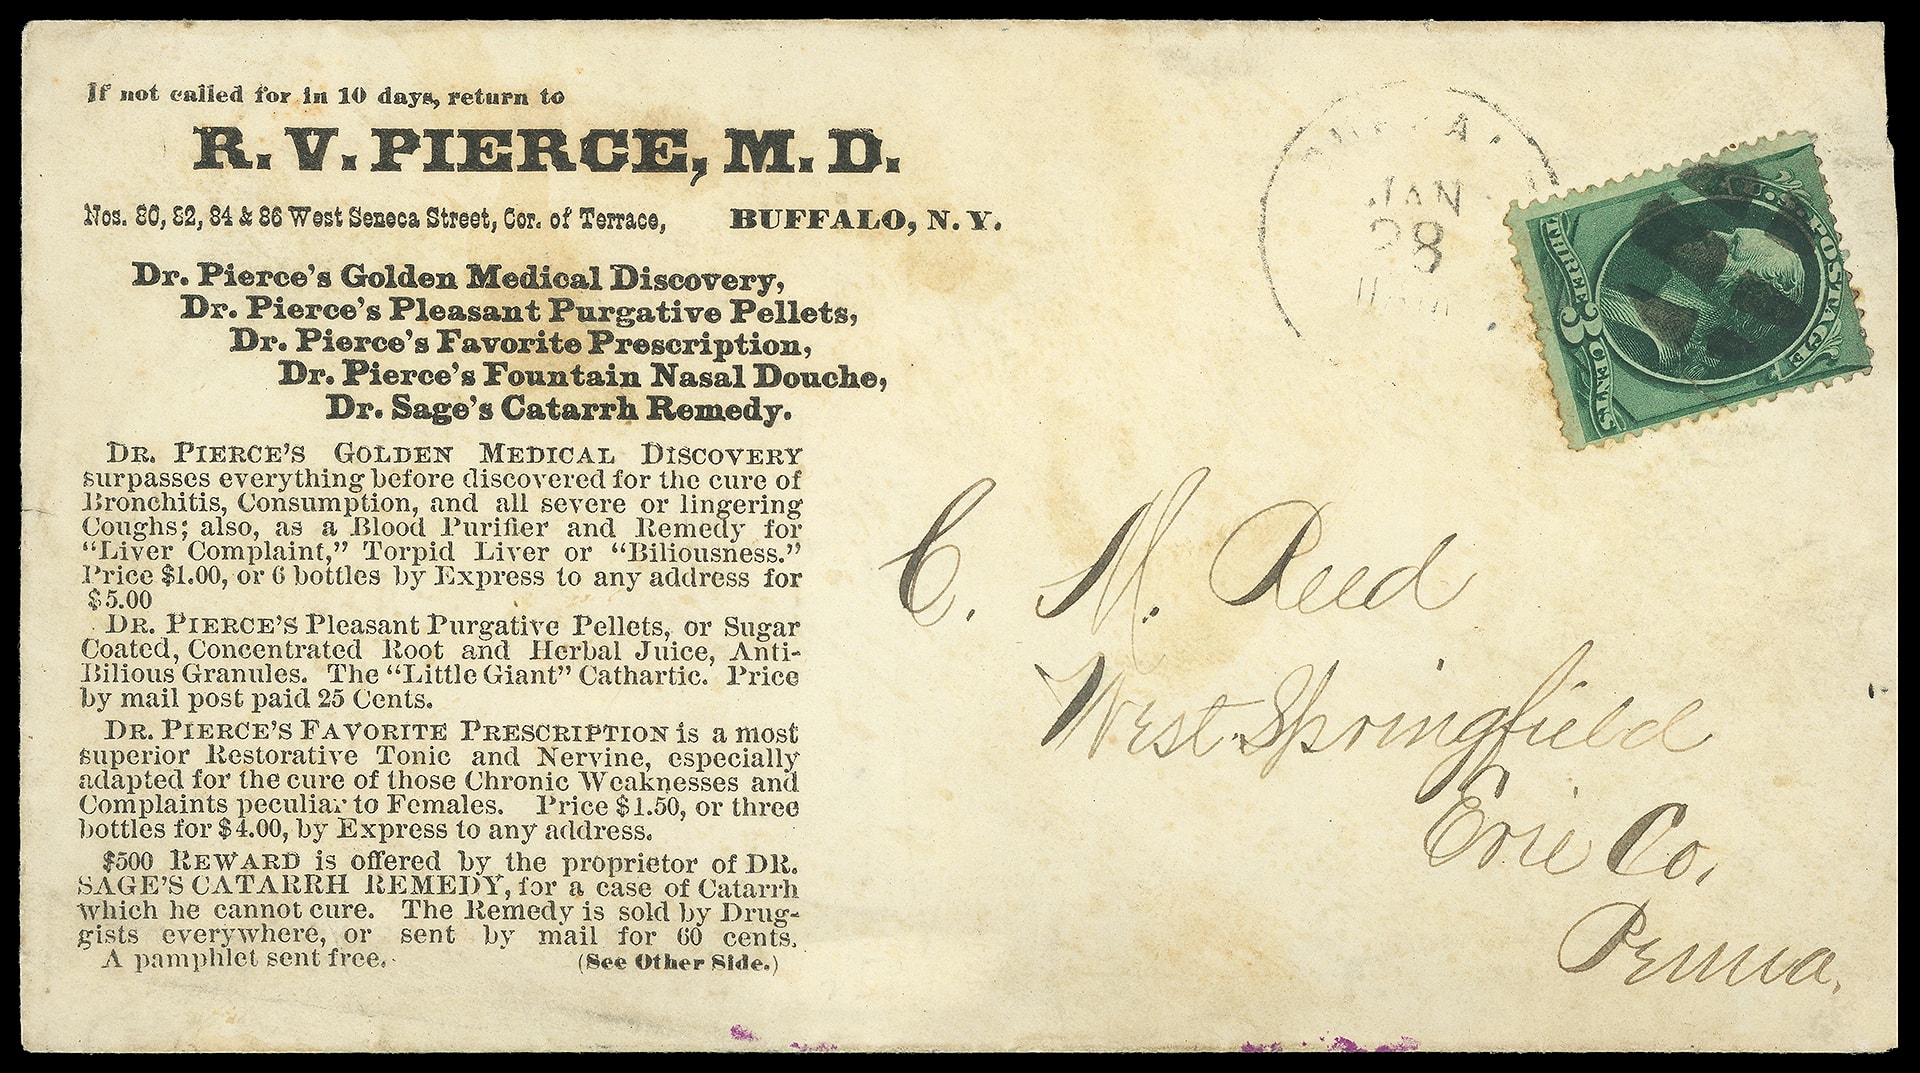 If not called for in 10 days, return to
R. V. PIERCE, M. D.
Nos. 80, 82, 84 & 86 West Seneca Street, Cor. of Terrace, BUFFALO, N. Y.
Dr. Pierce's Golden Medical Discovery,
Dr. Pierce's Pleasant Purgative Pellets,
Dr. Pierce's Favorite Prescription,
Dr. Pierce's Fountain Nasal Douche,
Dr. Sage's Catarrh Remedy.
DR. PIERCE'S GOLDEN MEDICAL DISCOVERY
surpasses everything before discovered for the cure of
Bronchitis, Consumption, and all severe or lingering
Coughs; also, as a Blood Purifier and Remedy for
"Liver Complaint," Torpid Liver or "Biliousness."
Price $1.00, or 6 bottles by Express to any address for
$5.00
DR. PIERCE'S Pleasant Purgative Pellets, or Sugar
Coated, Concentrated Root and Herbal Juice, Anti-
Bilious Granules. The "Little Giant" Cathartic. Price
by mail post paid 25 Cents.
DR. PIERCE'S FAVORITE PRESCRIPTION is a most
superior Restorative Tonic and Nervine, especially
adapted for the cure of those Chronic Weaknesses and
Complaints peculiar to Females. Price $1.50, or three
bottles for $4.00, by Express to any address.
$500 REWARD is offered by the proprietor of DR.
SAGE'S CATARRH REMEDY, for a case of Catarrh
which he cannot cure. The Remedy is sold by Drug-
gists everywhere, or sent by mail for 60 cents.
A pamphlet sent free. (See Other Side.)
JAN
28
U.S. POSTAGE
THREE 3 CENTS
C. M. Reed
West Springfield
Erie Co.
Penna.